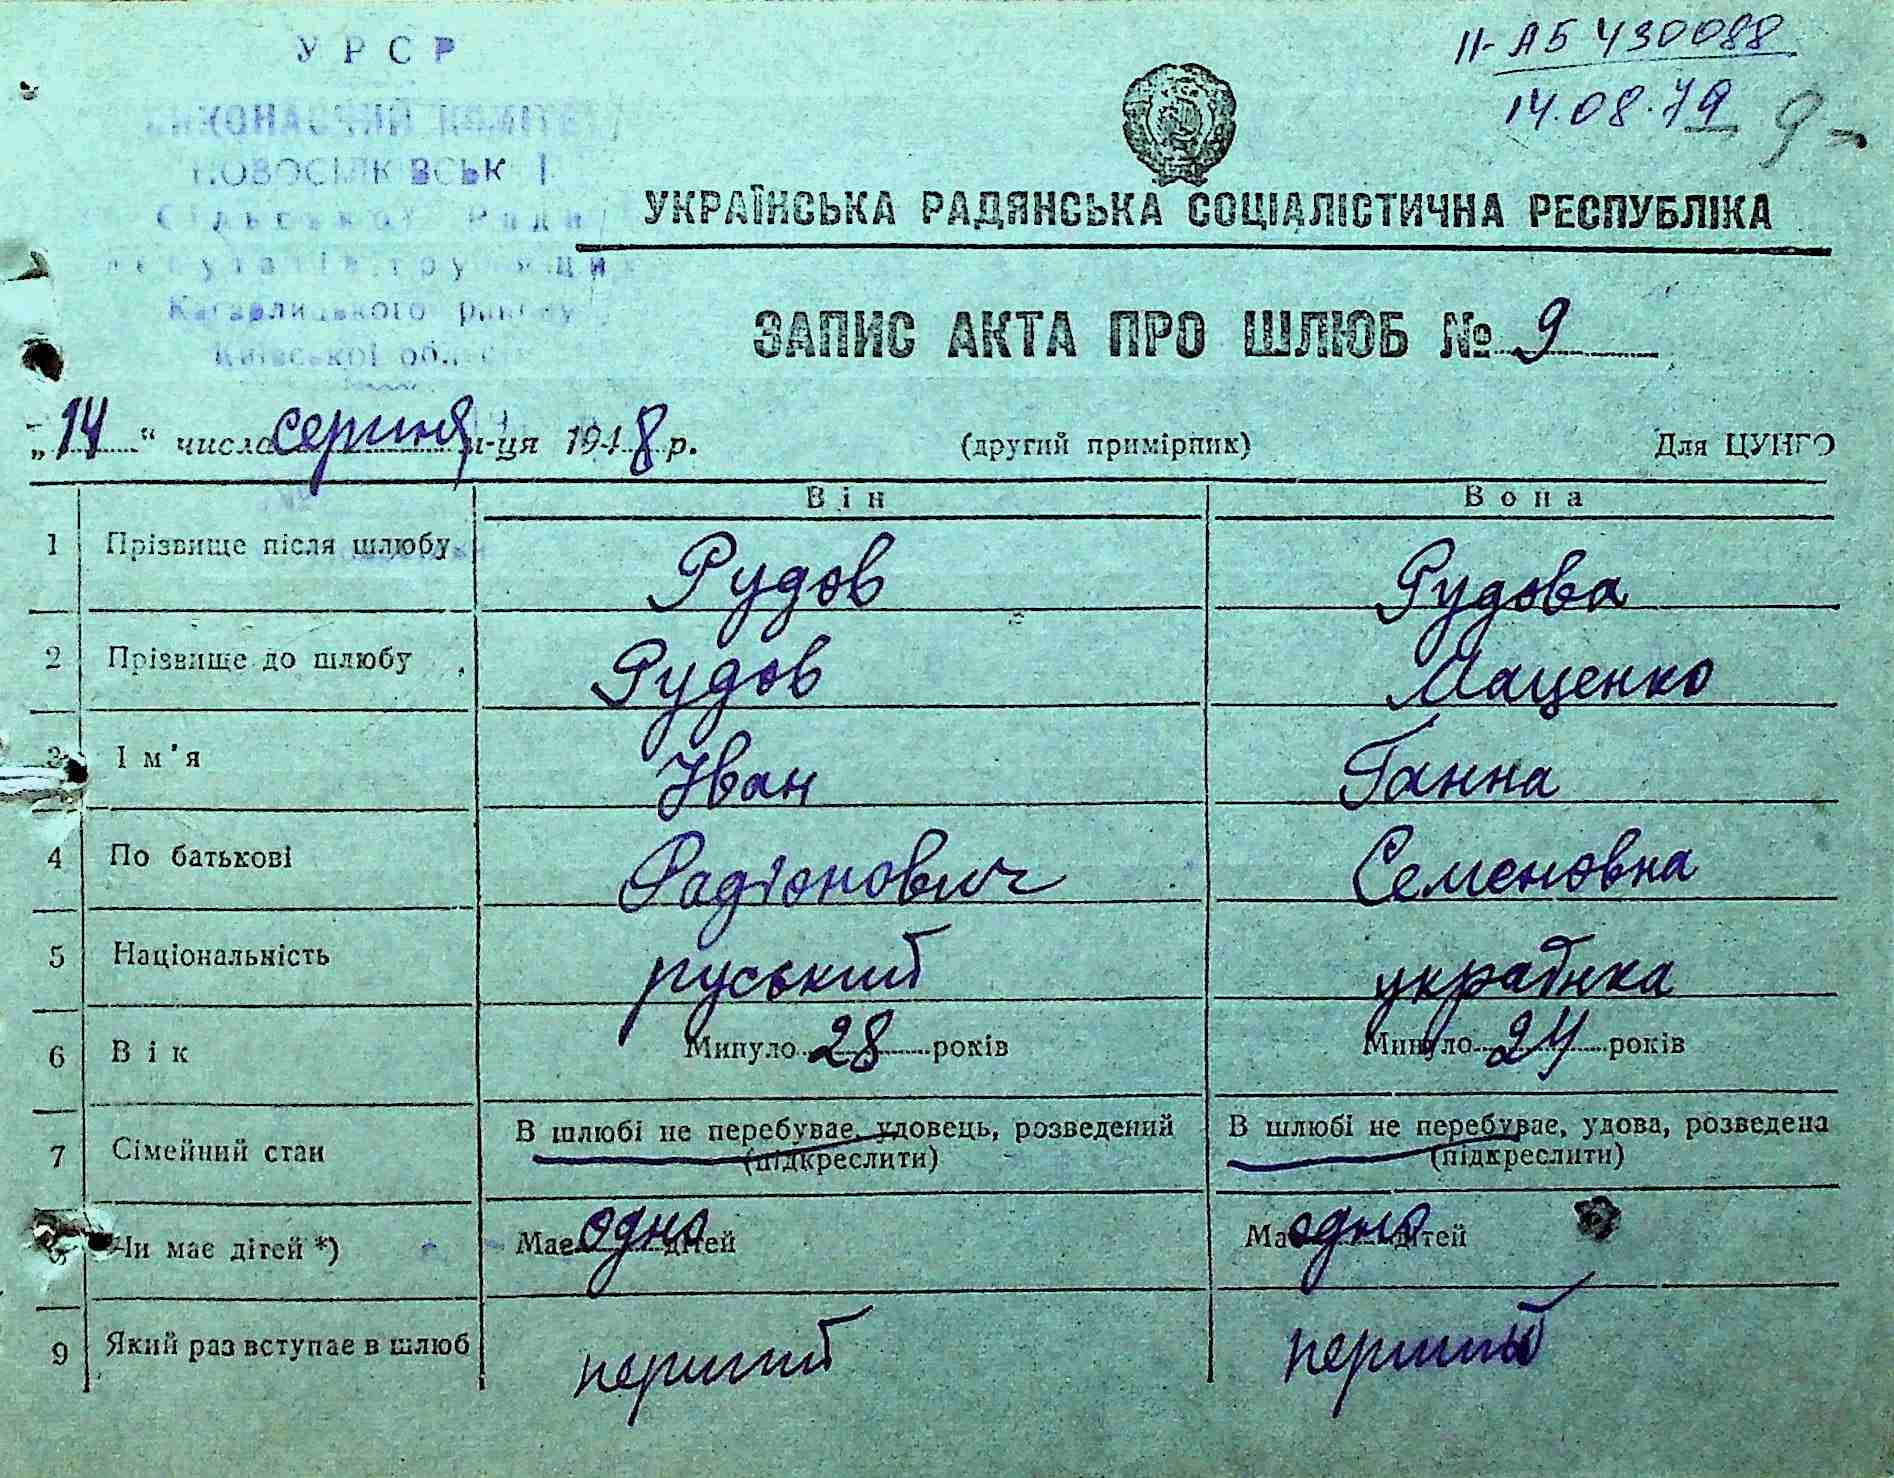 УРСР
ВИКОНАВЧИЙ КОМІТЕТ
НОВОСІЛКІВСЬК І
Сільської Ради
депутатів трудящих
Кагарлицького району
Київської області
ІІ-АБ 430088
14.08.79
9
УКРАЇНСЬКА РАДЯНСЬКА СОЦІАЛІСТИЧНА РЕСПУБЛІКА
ЗАПИС АКТА ПРО ШЛЮБ № 9
„14“ числа серпня м-ця 1948 р. (другий примірник) Для ЦУНГО
Він Вона
1 Прізвище після шлюбу Рудов Рудова
2 Прізвище до шлюбу Рудов Маценко
3 Ім'я Іван Ганна
4 По батькові Радіонович Семеновна
5 Національність руський українка
6 Вік Минуло 28 років Минуло 24 років
7 Сімейний стан В шлюбі не перебуває, удовець, розведений (підкреслити) В шлюбі не перебуває, удова, розведена (підкреслити)
8 Чи має дітей *) Має одно дітей Має одно дітей
9 Який раз вступає в шлюб перший перший